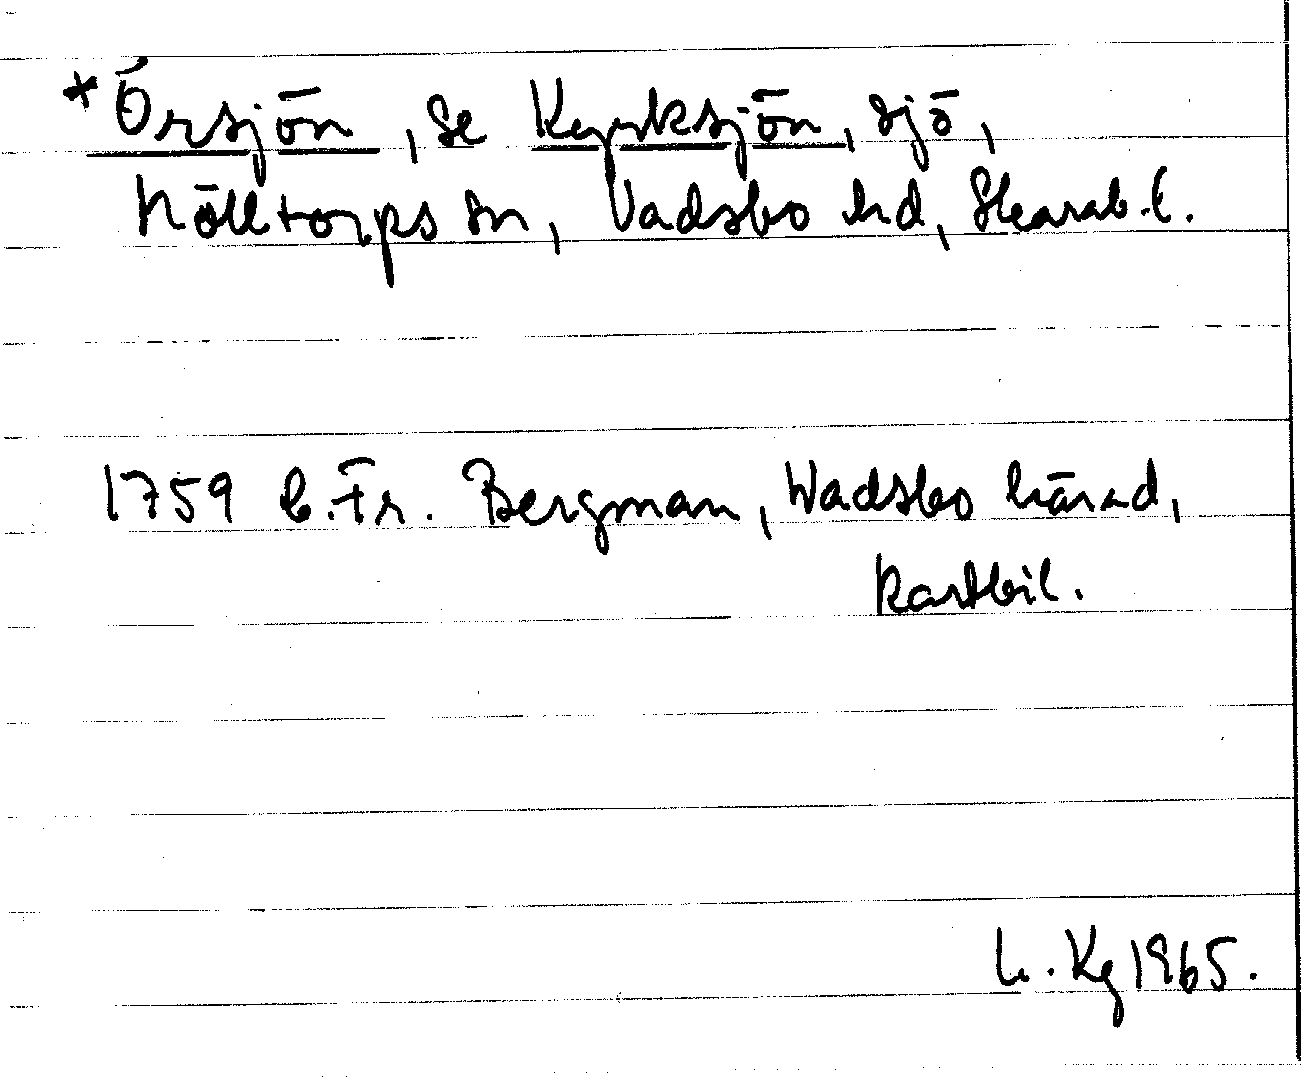 *Örsjön, se Kyrksjön, sjö,
Hölltorps sn, Vadsbo hd, Skarab. l.
1759 C. Fr. Bergman, Wadsbo härad,
kartbil.
L. Kg 1965.